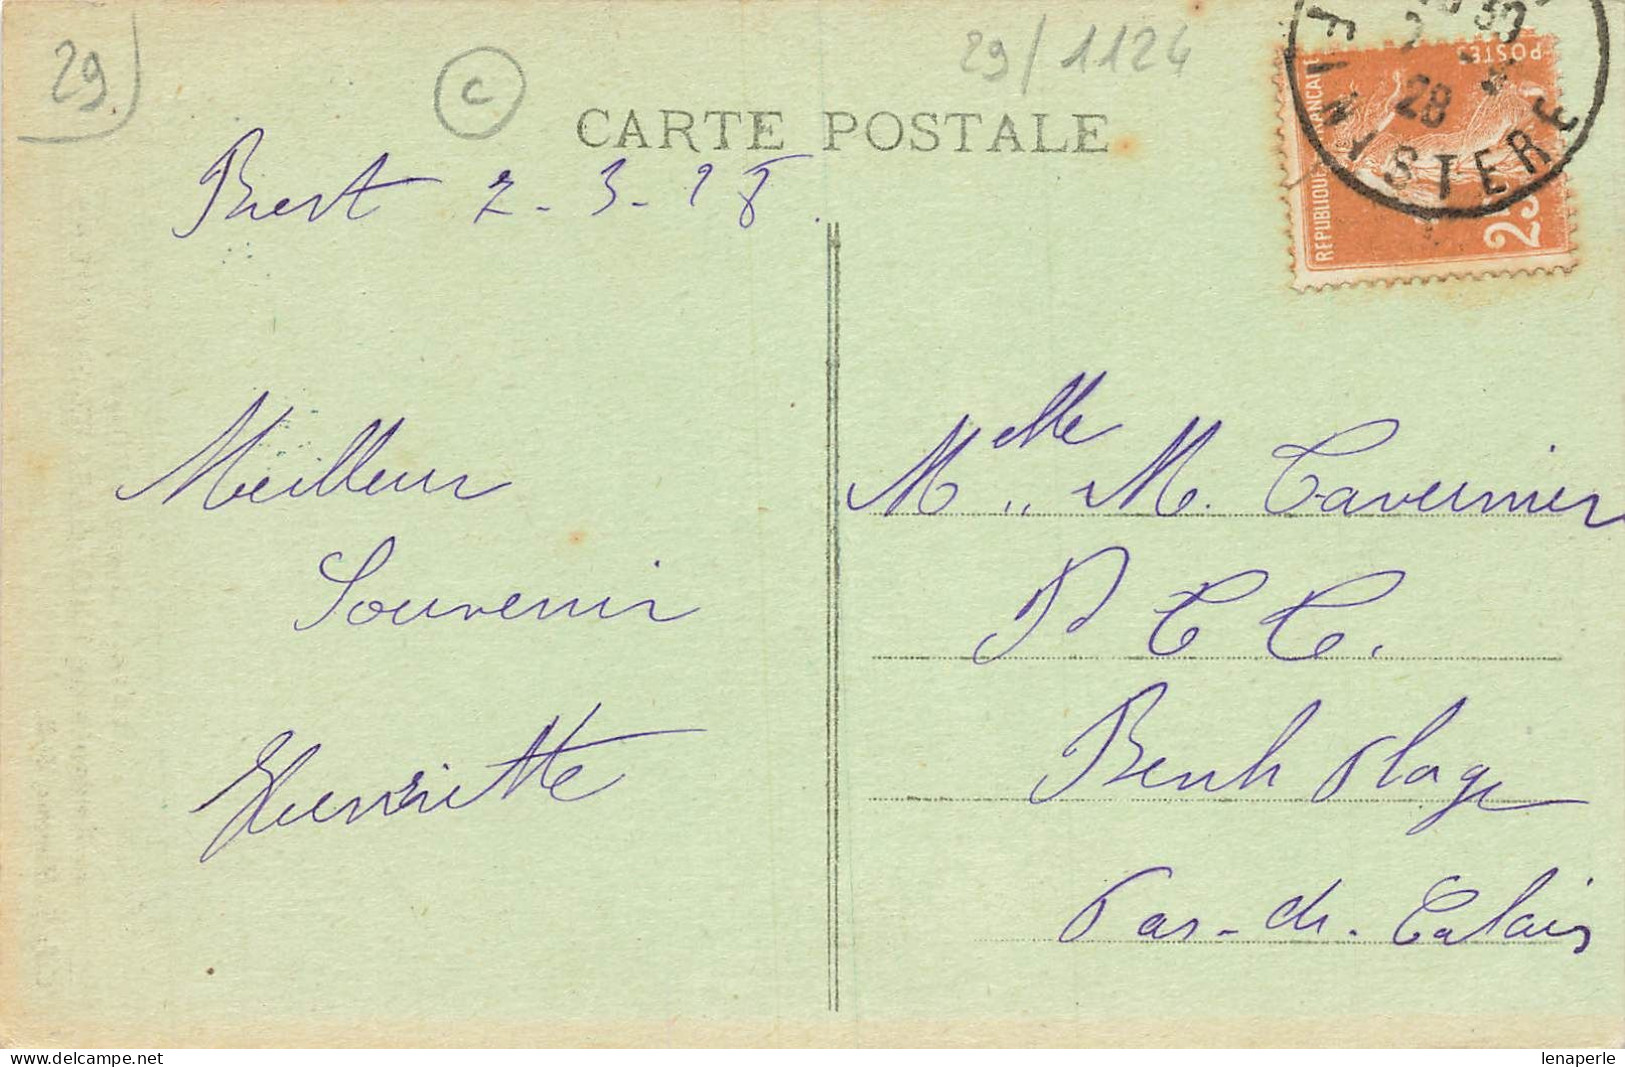 29
C
29/1124
CARTE POSTALE
Brest 2-3-28.
Meilleur
Souvenir
Henriette
POSTES
REPUBLIQUE FRANCAISE
25
28
FINISTERE
Melle M. Tavernier
P T T.
Berck Plage
Pas-de-Calais
delcampe.net
lenaperle